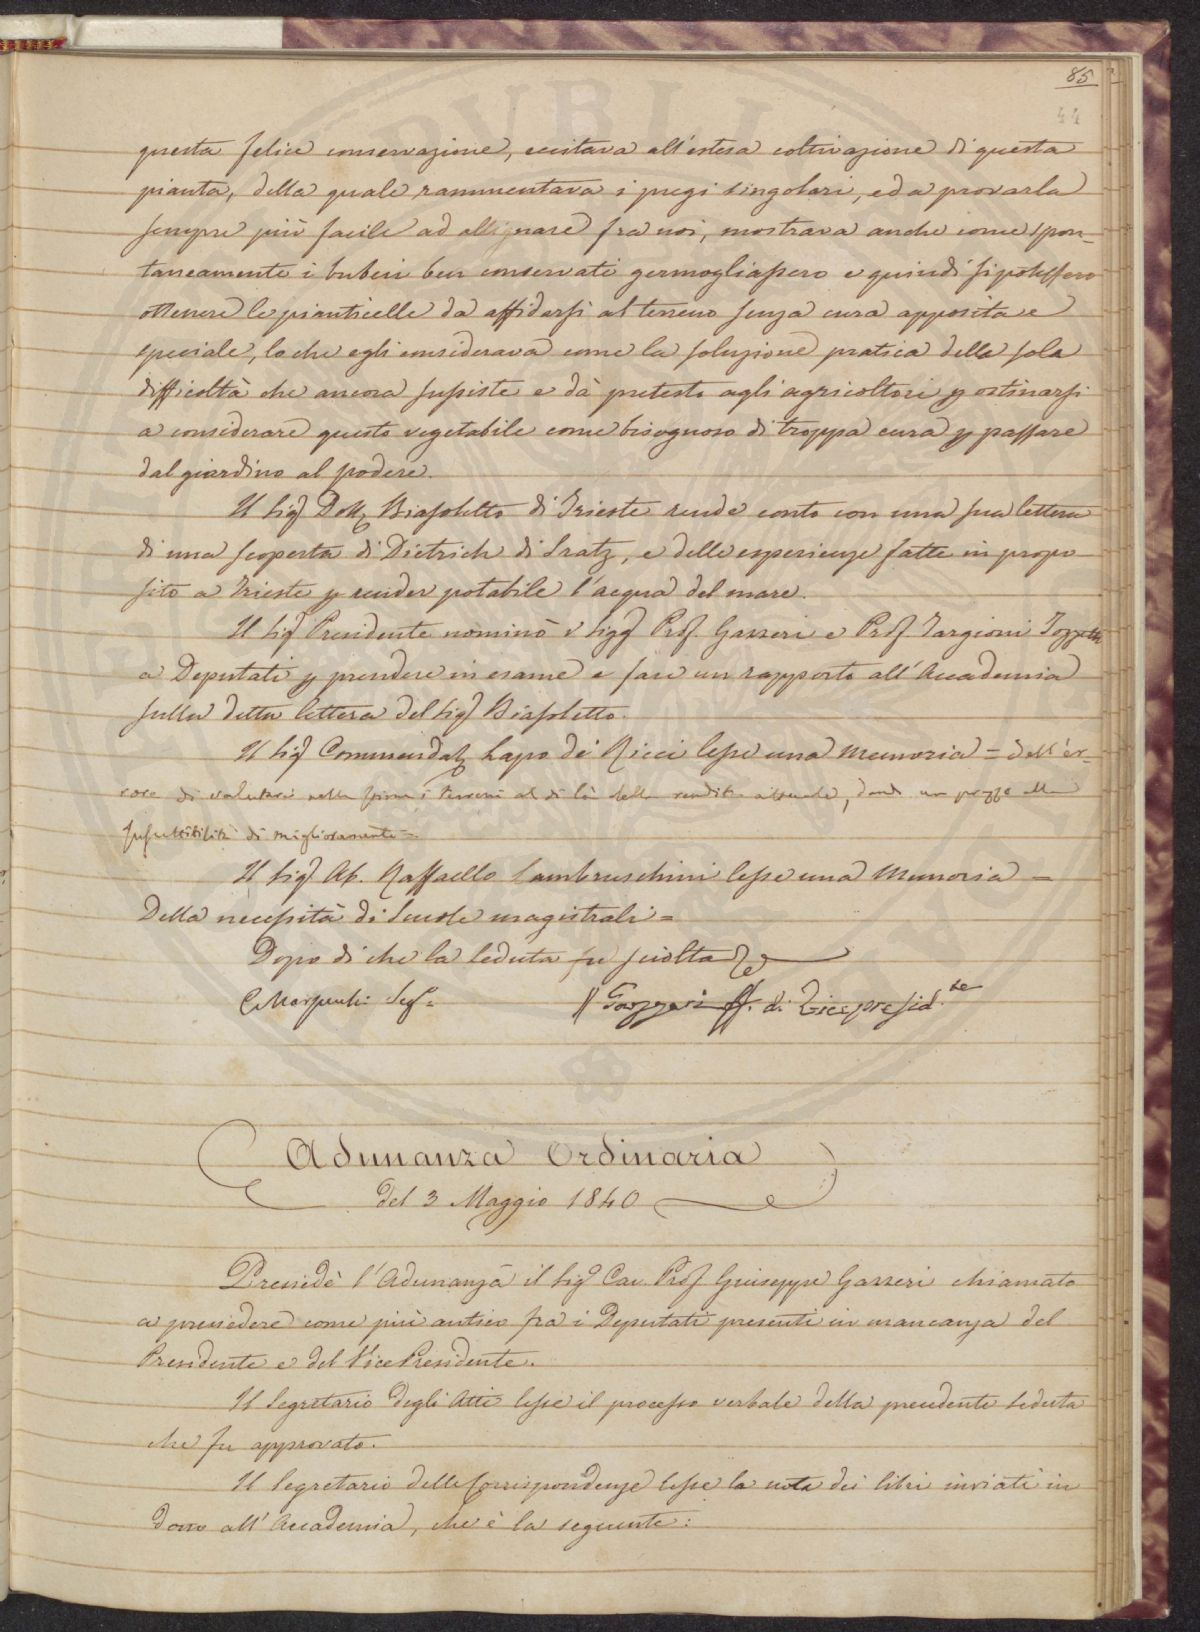 85
44
questa felice conservazione, eccitava all'estesa coltivazione di questa
pianta, della quale rammentava i pregi singolari, ed a provarla
sempre più facile ad allignare fra noi, mostrava anche come spon-
taneamente i bulbi ben conservati germogliassero e quindi si potessero
ottenere le pianticelle da affidarsi al terreno senza cura apposita e
speciale, lo che egli considerava come la soluzione pratica della sola
difficoltà che ancora sussiste e dà pretesto agli agricoltori p ostinarsi
a considerare questo vegetabile come bisognoso di troppa cura p passare
dal giardino al podere.
Il Sig Dott Biasoletto di Trieste rende conto con una sua lettera
di una scoperta di Dietrich di Gratz, e delle esperienze fatte in propo
sito a Trieste p render potabile l'acqua del mare.
Il Sig Presidente nominò i Sigg Prof. Gazzeri e Prof. Targioni Tozzetti
a Deputati p prendere in esame e fare un rapporto all'Accademia
sulla detta lettera del Sig Biasoletto.
Il Sig Commendat Lapo de' Ricci lesse una Memoria = dell'er-
rore di valutare nelle stime i terreni al di là della rendita attuale, dando un prezzo alla
suscettibilità di miglioramento =
Il Sig Ab. Raffaello Lambruschini lesse una Memoria =
Della necessità di Scuole magistrali =
Dopo di che la Seduta fu sciolta
Segr.o
Gazzeri ff. di Vicepresid.te
Adunanza Ordinaria
del 3 Maggio 1840
Presiedè l'Adunanza il Sig.o Cav. Prof. Giuseppe Gazzeri chiamato
a presiedere come più antico fra i Deputati presenti in mancanza del
Presidente e del Vice Presidente.
Il Segretario degli Atti lesse il processo verbale della precedente Seduta
che fu approvato.
Il Segretario delle Corrispondenze lesse la nota dei libri inviati in
dono all'Accademia, che è la seguente: